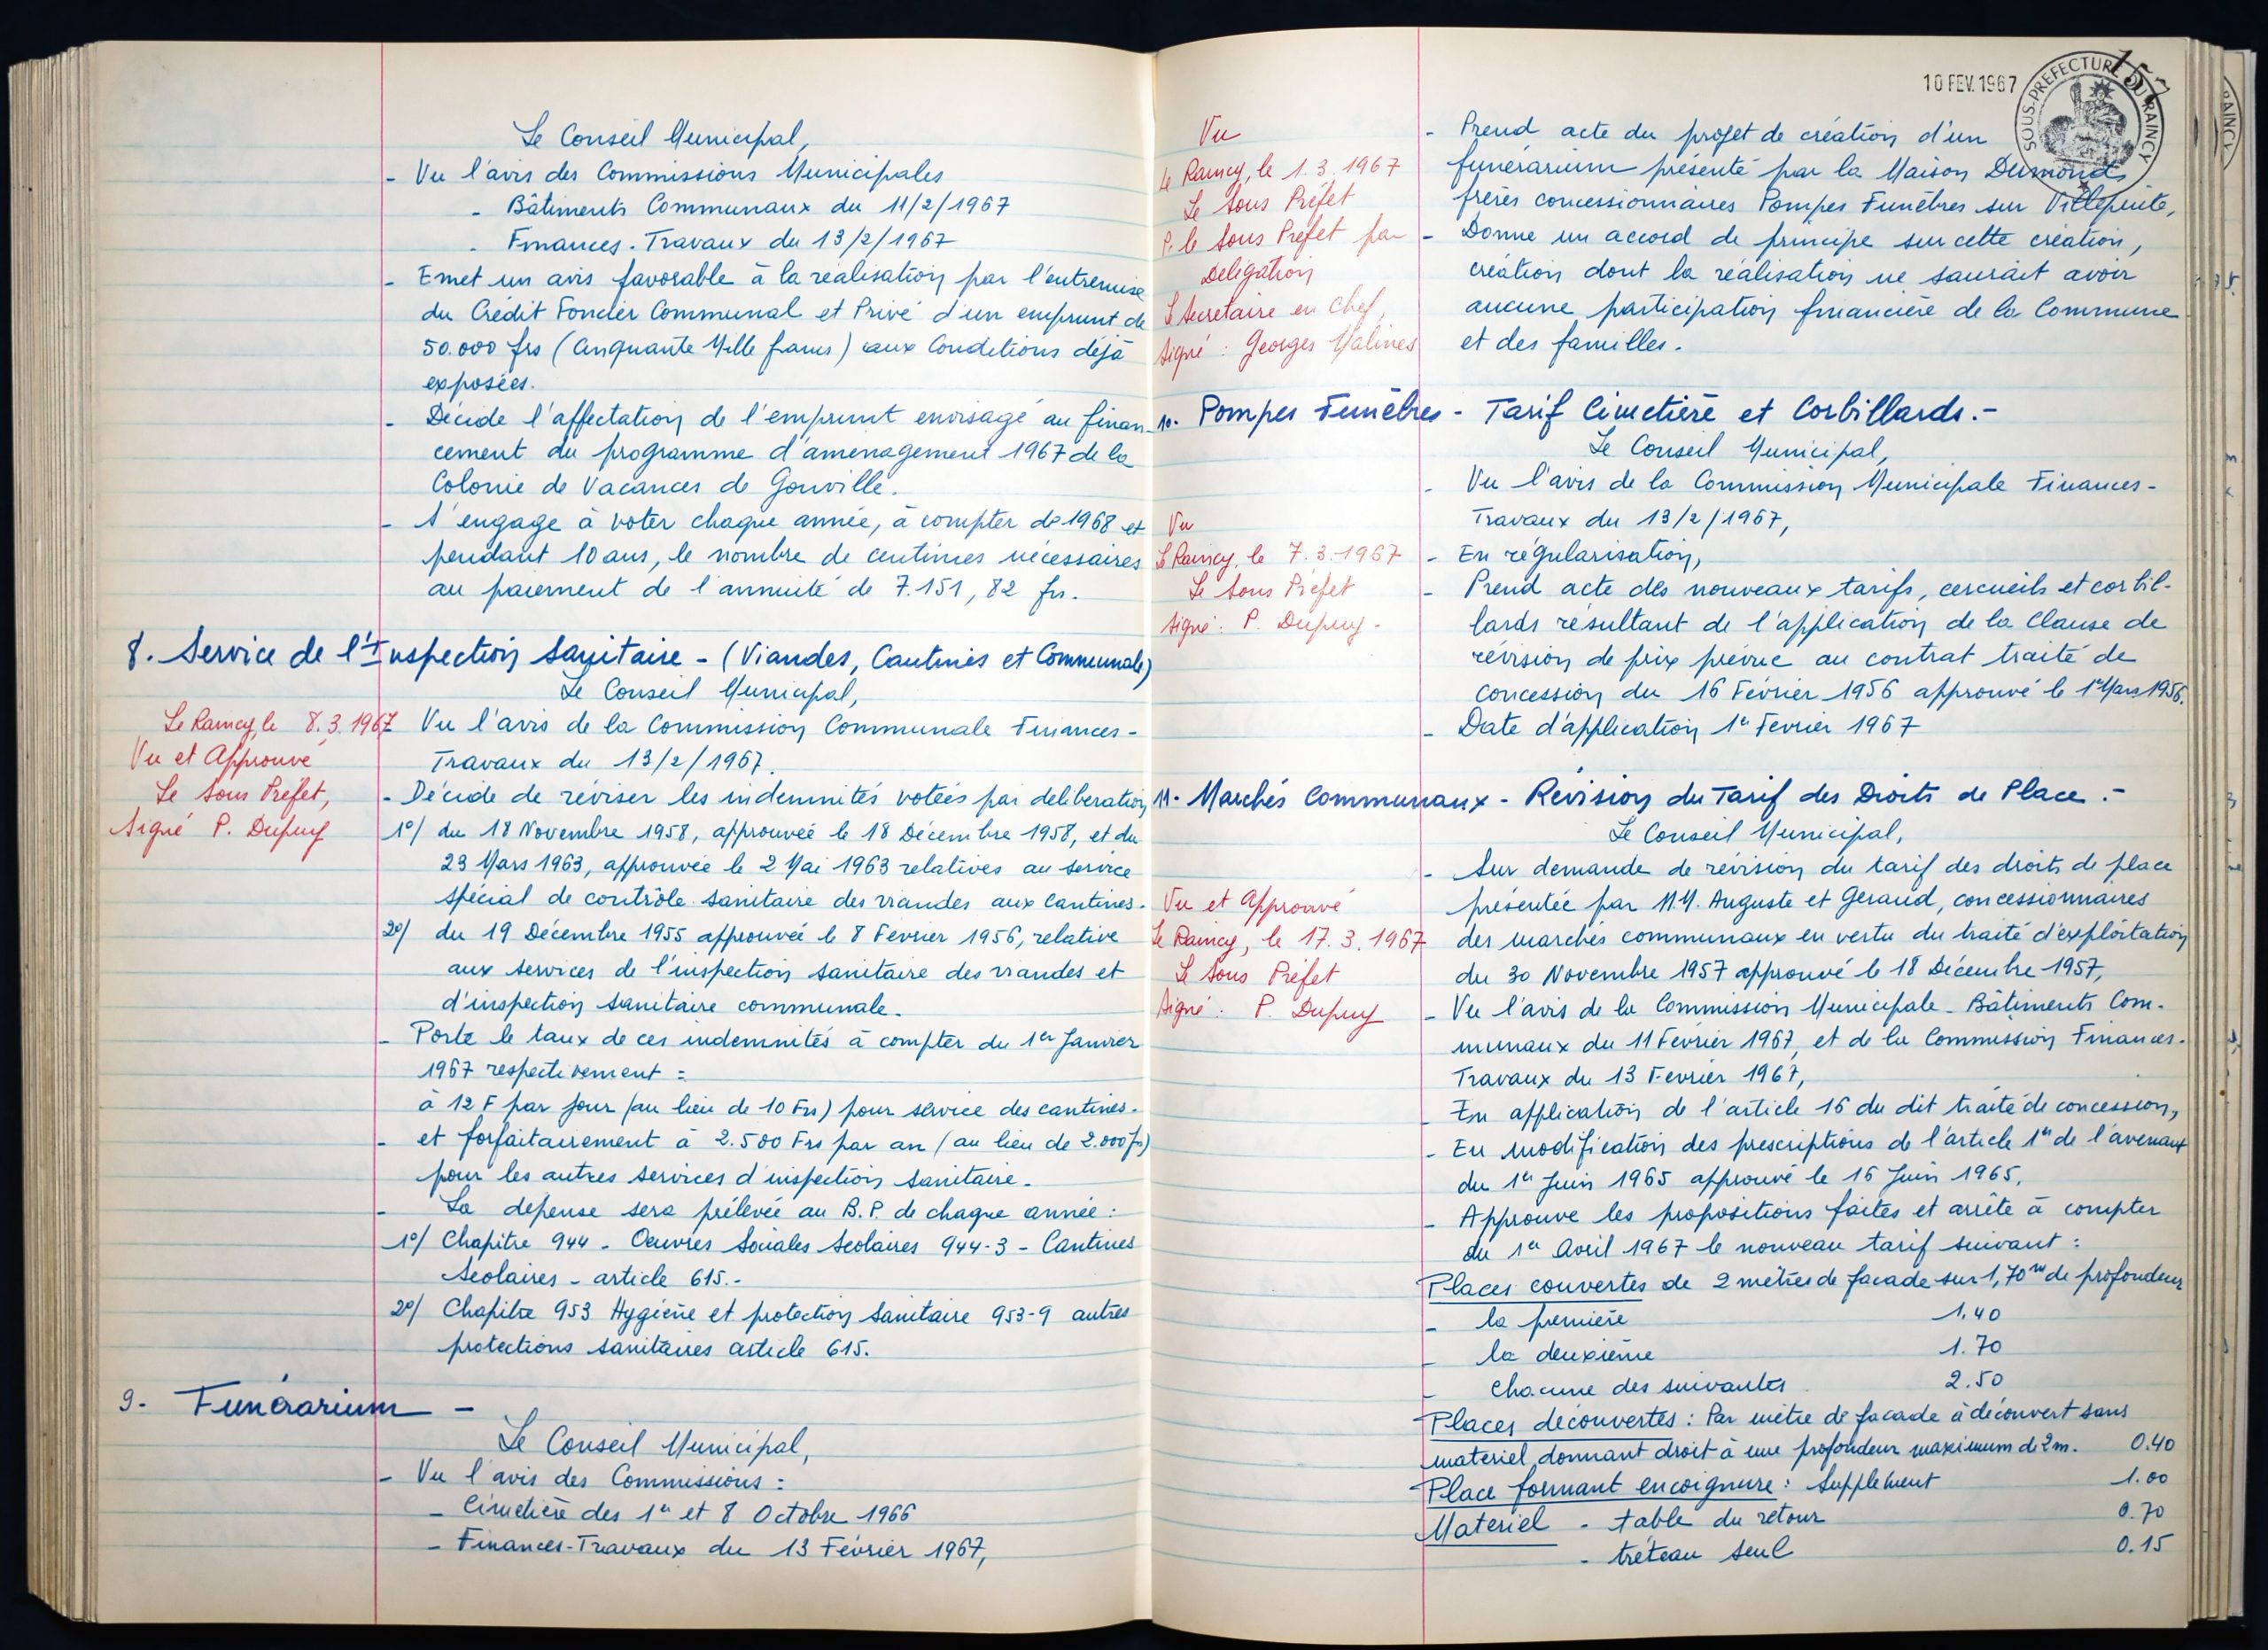 Le Conseil Municipal,
- Vu l'avis des Commissions Municipales
- Bâtiments Communaux du 11/2/1967
- Finances-Travaux du 13/2/1967
- Emet un avis favorable à la réalisation par l'entremise
du Crédit Foncier Communal et Privé d'un emprunt de
50.000 frs (Cinquante Mille francs) aux Conditions déjà
exposées.
- Décide l'affectation de l'emprunt envisagé au finan-
cement du programme d'aménagement 1967 de la
Colonie de Vacances de Gonville.
- S'engage à voter chaque année, à compter de 1968 et
pendant 10 ans, le nombre de centimes nécessaires
au paiement de l'annuité de 7.151,82 frs.
8. Service de l'Inspection Sanitaire - (Viandes, Cantines et Communale)
Le Conseil Municipal,
Le Raincy, le 8.3.1967
Vu et Approuvé
Le Sous Préfet,
Signé P. Dupuy
Vu l'avis de la Commission Communale Finances-
Travaux du 13/2/1967.
- Décide de réviser les indemnités votées par délibération
1°/ du 18 Novembre 1958, approuvée le 18 Décembre 1958, et du
23 Mars 1963, approuvée le 2 Mai 1963 relatives au service
spécial de contrôle sanitaire des viandes aux cantines.
2°/ du 19 Décembre 1955 approuvée le 8 Février 1956, relative
aux services de l'inspection sanitaire des viandes et
d'inspection sanitaire communale.
- Porte le taux de ces indemnités à compter du 1er Janvier
1967 respectivement :
à 12 F par jour (au lieu de 10 Frs) pour service des cantines.
- et forfaitairement à 2.500 Frs par an (au lieu de 2.000 frs)
pour les autres services d'inspection sanitaire.
- La dépense sera prélevée au B.P. de chaque année :
1°/ Chapitre 944 - Oeuvres Sociales Scolaires 944-3 - Cantines
Scolaires - article 615.-
2°/ Chapitre 953 Hygiène et protection Sanitaire 953-9 autres
protections sanitaires article 615.
9. Funérarium -
Le Conseil Municipal,
- Vu l'avis des Commissions :
- Cimetière des 1er et 8 Octobre 1966
- Finances-Travaux du 13 Février 1967,
10 FEV. 1967
SOUS-PREFECTURE DU RAINCY
157
Vu
Le Raincy, le 1.3.1967
Le Sous Préfet
P. le Sous Préfet par
Délégation
L Secrétaire en Chef,
Signé : Georges Malines
- Prend acte du projet de création d'un
funérarium présenté par la Maison Dumonds
frères concessionnaires Pompes Funèbres sur Villepinte,
- Donne un accord de principe sur cette création,
création dont la réalisation ne saurait avoir
aucune participation financière de la Commune
et des familles.
10. Pompes Funèbres - Tarif Cimetière et Corbillards.-
Le Conseil Municipal,
- Vu l'avis de la Commission Municipale Finances-
Travaux du 13/2/1967,
Vu
Le Raincy, le 7.3.1967
Le Sous Préfet
Signé : P. Dupuy -
- En régularisation,
- Prend acte des nouveaux tarifs, cercueils et corbil-
lards résultant de l'application de la Clause de
révision de prix prévue au contrat traité de
concession du 16 Février 1956 approuvé le 1er Mars 1956.
- Date d'application 1er Février 1967
11. Marchés Communaux - Révision du Tarif des Droits de Place.-
Le Conseil Municipal,
- Sur demande de révision du tarif des droits de place
présentée par M.M. Auguste et Geraud, concessionnaires
des marchés communaux en vertu du traité d'exploitation
du 30 Novembre 1957 approuvé le 18 Décembre 1957,
Vu et Approuvé
Le Raincy, le 17.3.1967
Le Sous Préfet
Signé : P. Dupuy
- Vu l'avis de la Commission Municipale - Bâtiments Com-
munaux du 11 Février 1967, et de la Commission Finances-
Travaux du 13 Février 1967,
- En application de l'article 16 du dit traité de concession,
- En modification des prescriptions de l'article 1er de l'avenant
du 1er Juin 1965 approuvé le 16 Juin 1965,
- Approuve les propositions faites et arrête à compter
du 1er Avril 1967 le nouveau tarif suivant :
Places couvertes de 2 mètres de façade sur 1,70m de profondeur
- la première 1.40
- la deuxième 1.70
- chacune des suivantes 2.50
Places découvertes : Par mètre de façade à découvert sans
matériel, donnant droit à une profondeur maximum de 2m. 0.40
Place formant encoignure : Supplément 1.00
Matériel - table du retour 0.70
- tréteau seul 0.15